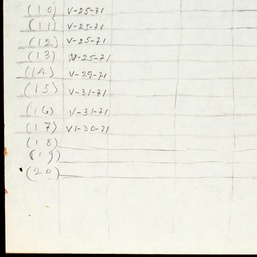 (10) V-25-71
(11) V-25-71
(12) V-25-71
(13) V-25-71
(14) V-29-71
(15) V-31-71
(16) V-31-71
(17) VI-30-71
(18)
(19)
(20)